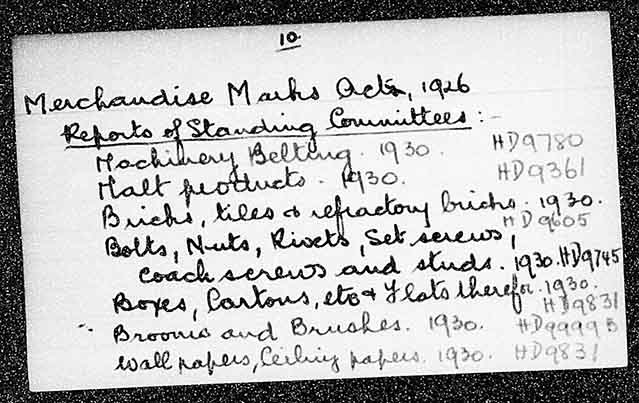 10.
Merchandise Marks Acts, 1926
Reports of Standing Committees :-
Machinery Belting. 1930. HD9780
Malt products. 1930. HD9361
Bricks, tiles & refractory bricks. 1930.
HD9605
Bolts, Nuts, Rivets, Set screws,
Coach screws and studs. 1930. HD9745
Boxes, Cartons, etc & Flats therefor. 1930.
HD9831
Brooms and Brushes. 1930. HD9999B
Wall papers, Ceiling papers. 1930. HD9831